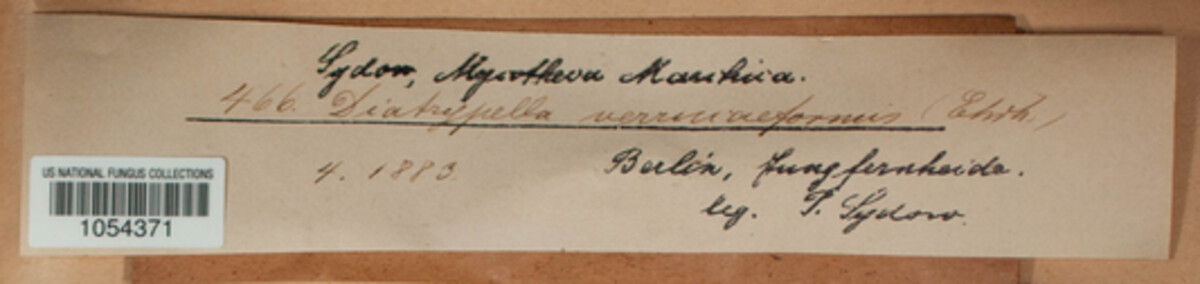 Sydow, Mycotheca Marchica.
466. Diatrypella verrucaeformis (Ehrh.)
4. 1883.
Berlin, Jungfernheide.
leg. P. Sydow.
US NATIONAL FUNGUS COLLECTIONS
1054371